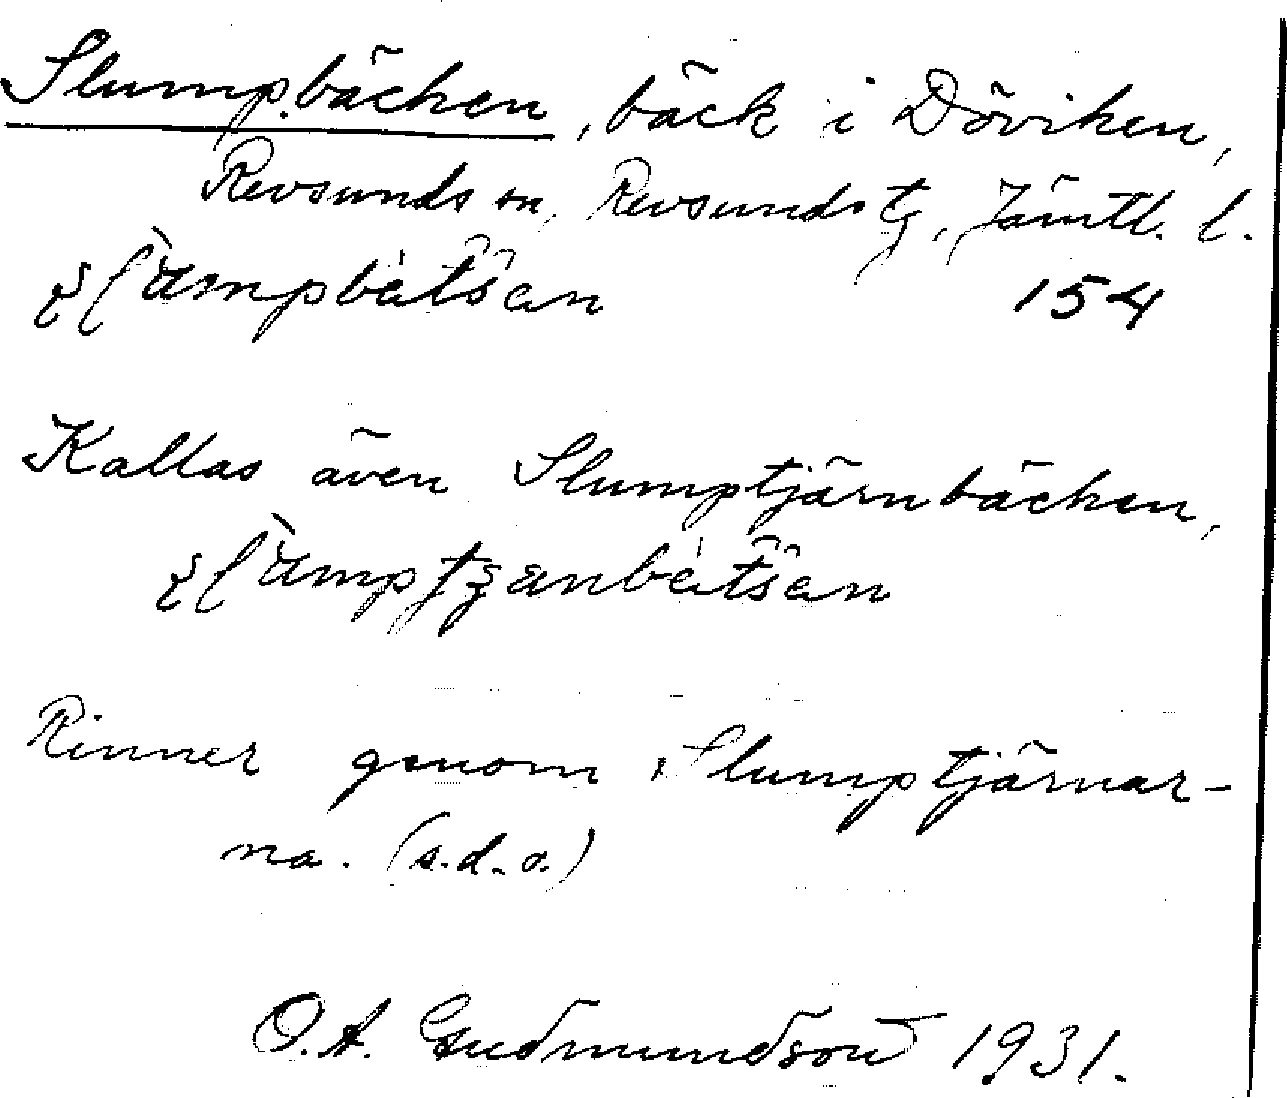 Slumpbäcken, bäck i Döviken,
Revsunds sn, Revsunds tg, Jämtl. l.
154
Kallas även Slumptjärnbäcken,
Rinner genom Slumptjärnar-
na. (s.d.o.)
O.A. Gudmundson 1931.